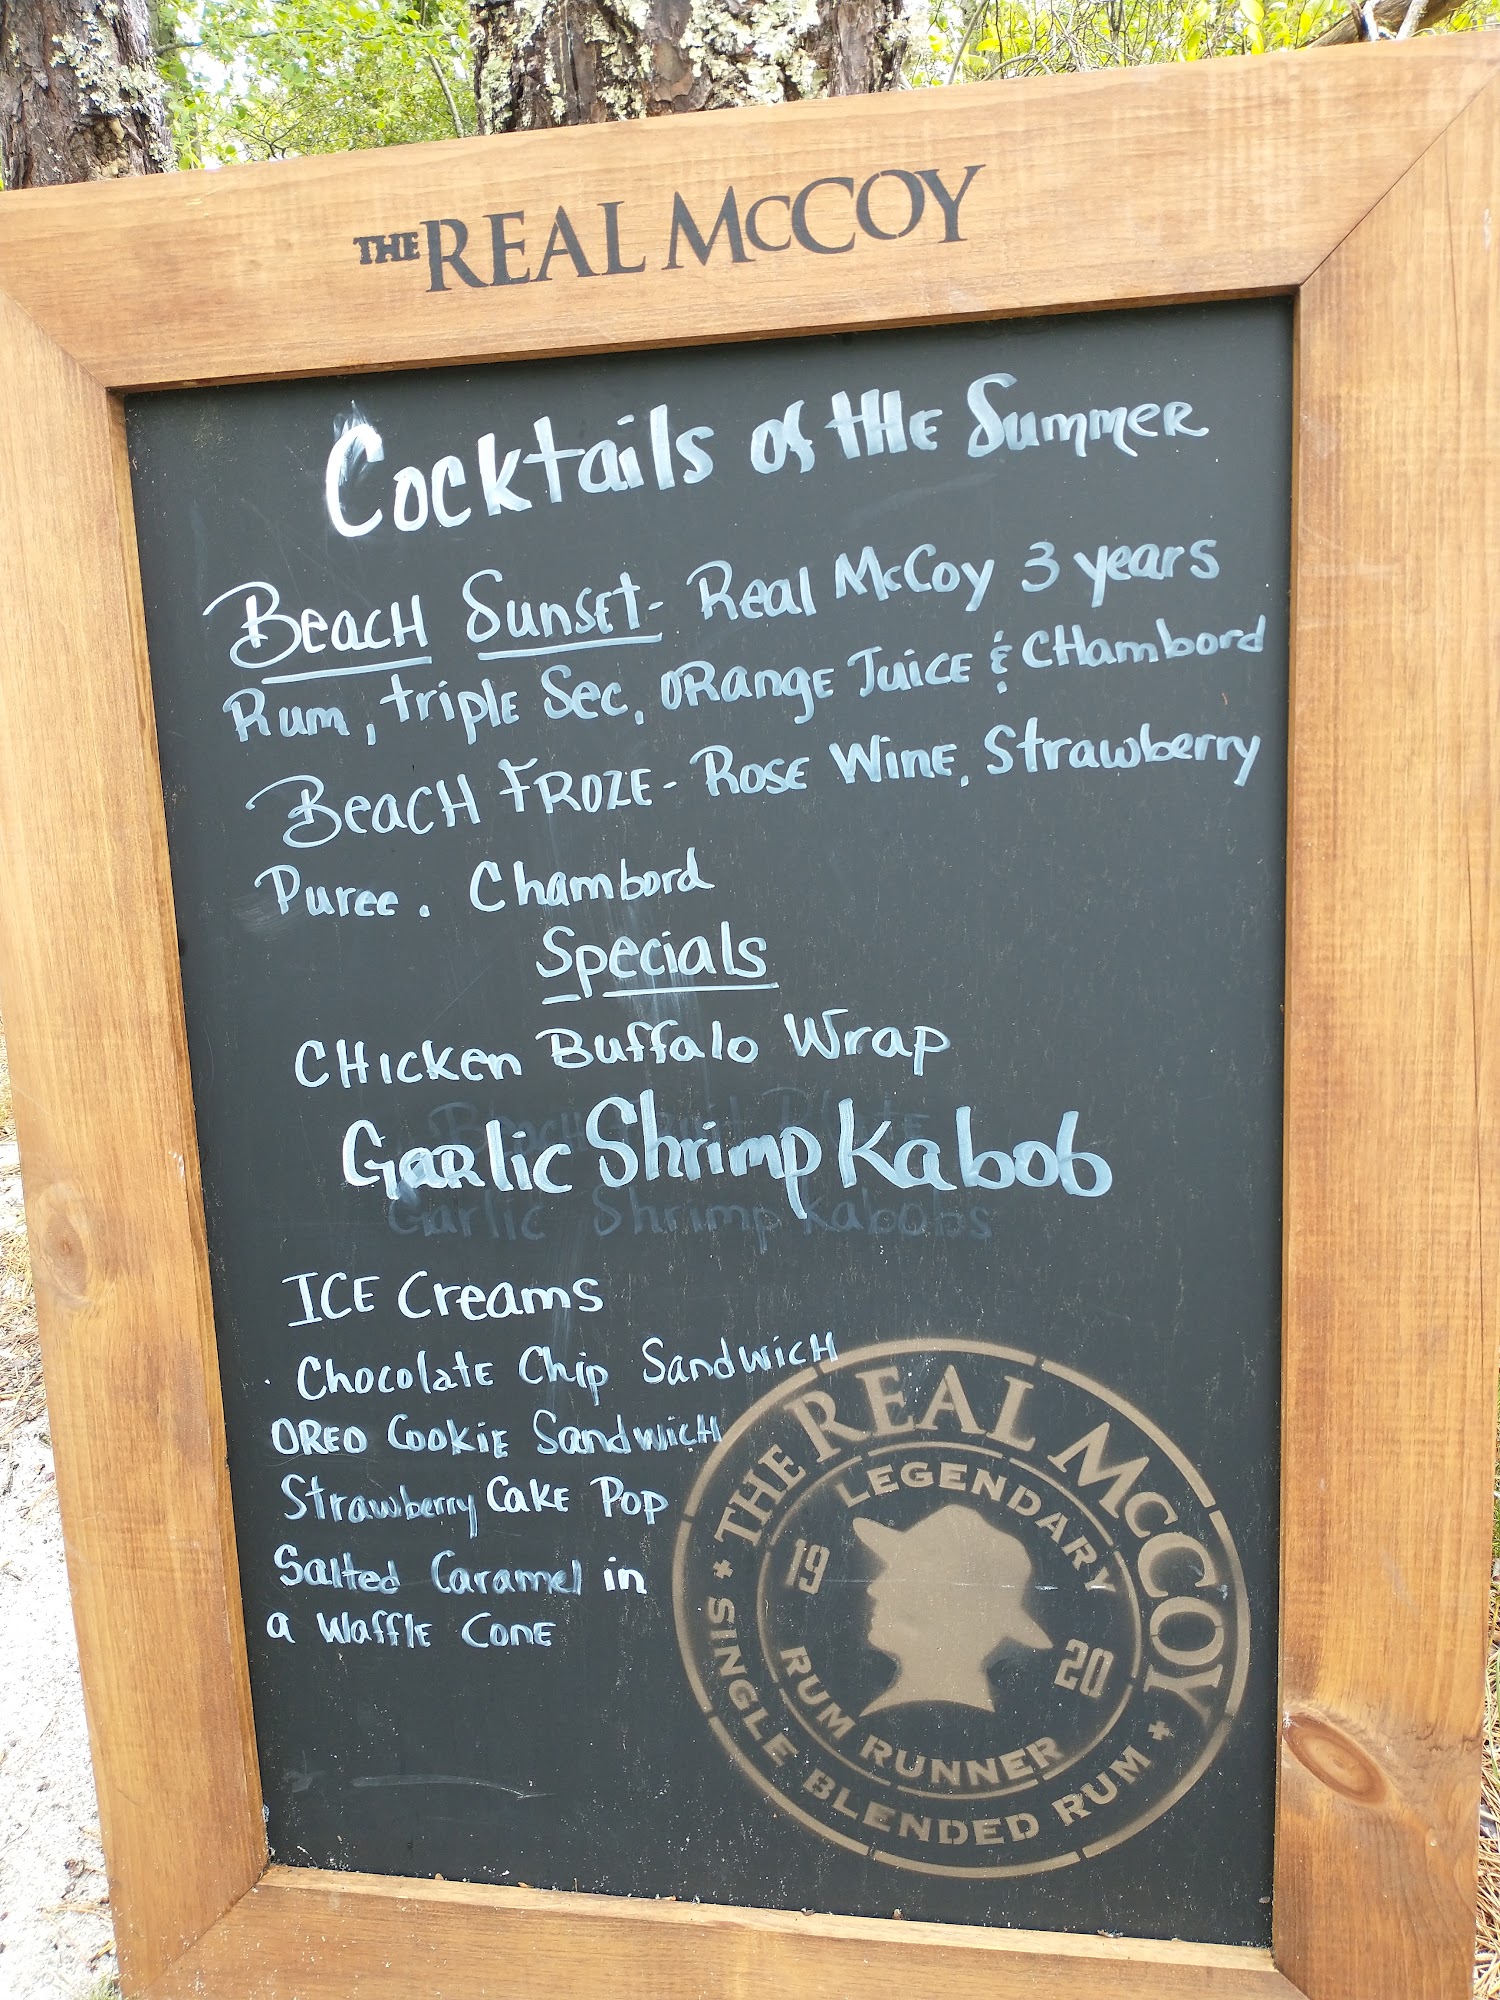 THE REAL McCOY
Cocktails of the Summer
Beach Sunset - Real McCoy 3 years
Rum, triple Sec, orange Juice & Chambord
Beach Froze - Rose Wine, Strawberry
Puree. Chambord
Specials
Chicken Buffalo Wrap
Garlic Shrimp Kabob
Garlic Shrimp Kabobs
ICE Creams
Chocolate Chip Sandwich
OREO Cookie Sandwich
Strawberry Cake Pop
Salted Caramel in
a Waffle Cone
THE REAL McCOY
LEGENDARY
19 20
RUM RUNNER
SINGLE BLENDED RUM